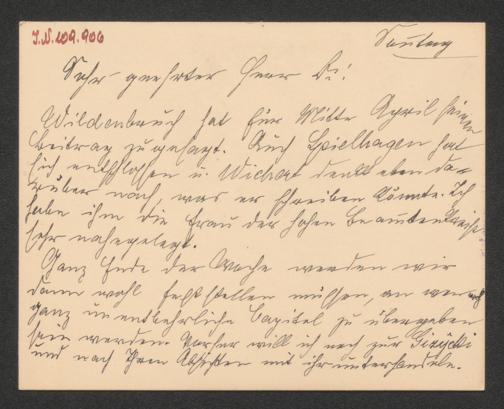 I.N. 109.906
Sontag
Sehr geehrter Herr Dr.!
Wildenbruch hat für Mitte April seinen
Beitrag zugesagt. Auch Spielhagen hat
sich entschlossen u. Wichert denkt eben da=
rüber nach, was er schreiben könnte. Ich
habe ihm die Frau der hohen Beamtenkreise
sehr nahegelegt.
Ganz Ende der Woche werden wir
dann wohl feststellen müssen, an wen noch
ganz unentbehrliche Capitel zu übergeben
sein werden. Vorher will ich noch zur Gizycki
und nach Ihren Absichten mit ihr unterhandeln.